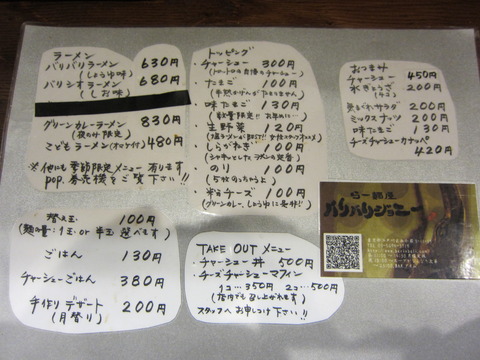 ラーメン
バリバリラーメン 630円
(しょうゆ味)
バリシオラーメン 680円
(しお味)
グリーンカレーラーメン 830円
(夜のみ限定)
こどもラーメン(オマケ付) 480円
※他にも季節限定メニュー有ります
pop、券売機をご覧下さい!!
トッピング
・チャーシュー 300円
(トロトロの自慢のチャーシュー)
・たまご 100円
(半熟かげんがたまりません)
・味たまご 130円
(数量限定!! お早めに…)
・生野菜 120円
・しらがねぎ 100円
(シャキッとしたラーメンの定番)
・のり 100円
(5枚のっちゃうよ)
・粉チーズ 100円
(グリーンカレー、しょうゆに最適!!)
おつまみ
チャーシュー 450円
水ぎょうざ 200円
200円
ミックスナッツ 200円
味たまご 130円
チーズチャーシューカナッペ
420円
らー麺屋
バリバリジョニー
替え玉 100円
(麺の量: 1玉 or 半玉 選べます)
ごはん 130円
チャーシューごはん 380円
手作りデザート 200円
(月替り)
TAKE OUT メニュー
・チャーシュー丼 500円
・チーズチャーシューマフィン
1コ…350円 2コ…500円
(店内でも召し上がれます)
スタッフへお申しつけ下さい!!